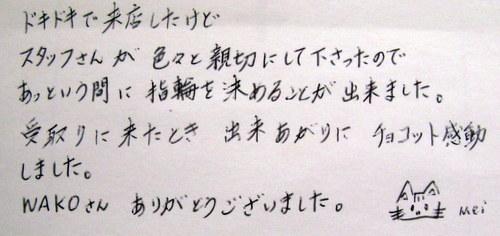 ドキドキで来店したけど
スタッフさんが色々と親切にして下さったので
あっという間に指輪を決めることが出来ました。
受取りに来たとき 出来あがりに チョコット感動
しました。
WAKOさん ありがとうございました。 mei